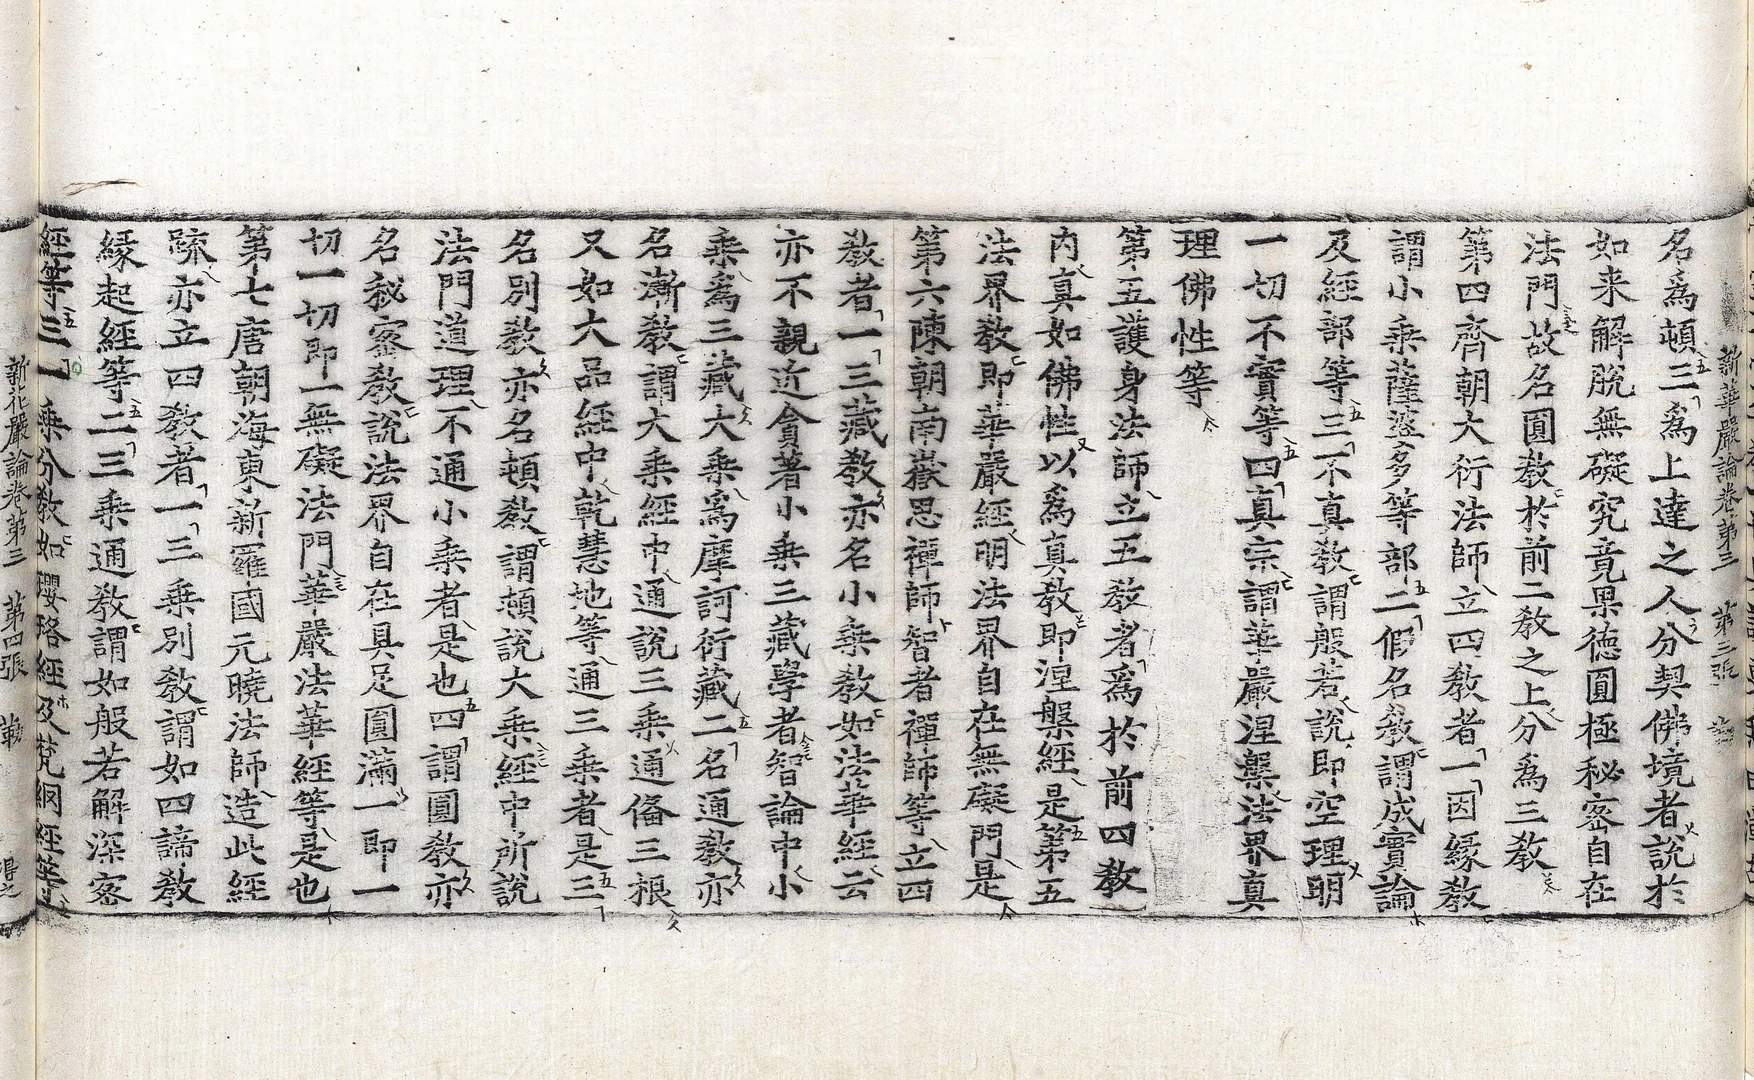 新華嚴論卷第三 第三張
名爲頓三爲上達之人分契佛境者說於
如来解脫無礙究竟果德圓極秘密自在
法門故名圓教於前二教之上分爲三教
第四齊朝大衍法師立四教者一因緣教
謂小乘薩婆多等部二假名教謂成實論
及經部等三不真教謂般若說即空理明
一切不實等四真宗謂華嚴涅槃法界真
理佛性等
第五護身法師立五教者爲於前四教
內真如佛性以爲真教即涅槃經是第五
法界教即華嚴經明法界自在無礙門是
第六陳朝南嶽思禪師智者禪師等立四
教者一三藏教亦名小乘教如法華經云
亦不親近貪著小乘三藏學者智論中小
乘爲三藏大乘爲摩訶衍藏二名通教亦
名漸教謂大乘經中通說三乘通俻三根
又如大品經中乾慧地等通三乘者是三
名別教亦名頓教謂頓說大乘經中所說
法門道理不通小乘者是也四謂圓教亦
名秘密教說法界自在具足圓滿一即一
切一切即一無礙法門華嚴法華經等是也
第七唐朝海東新羅國元曉法師造此經
疏亦立四教者一三乘別教謂如四諦教
緣起經等二三乘通教謂如般若解深密
經等三一乘分教如瓔珞經及梵網經等
新花嚴論卷第三 第四張